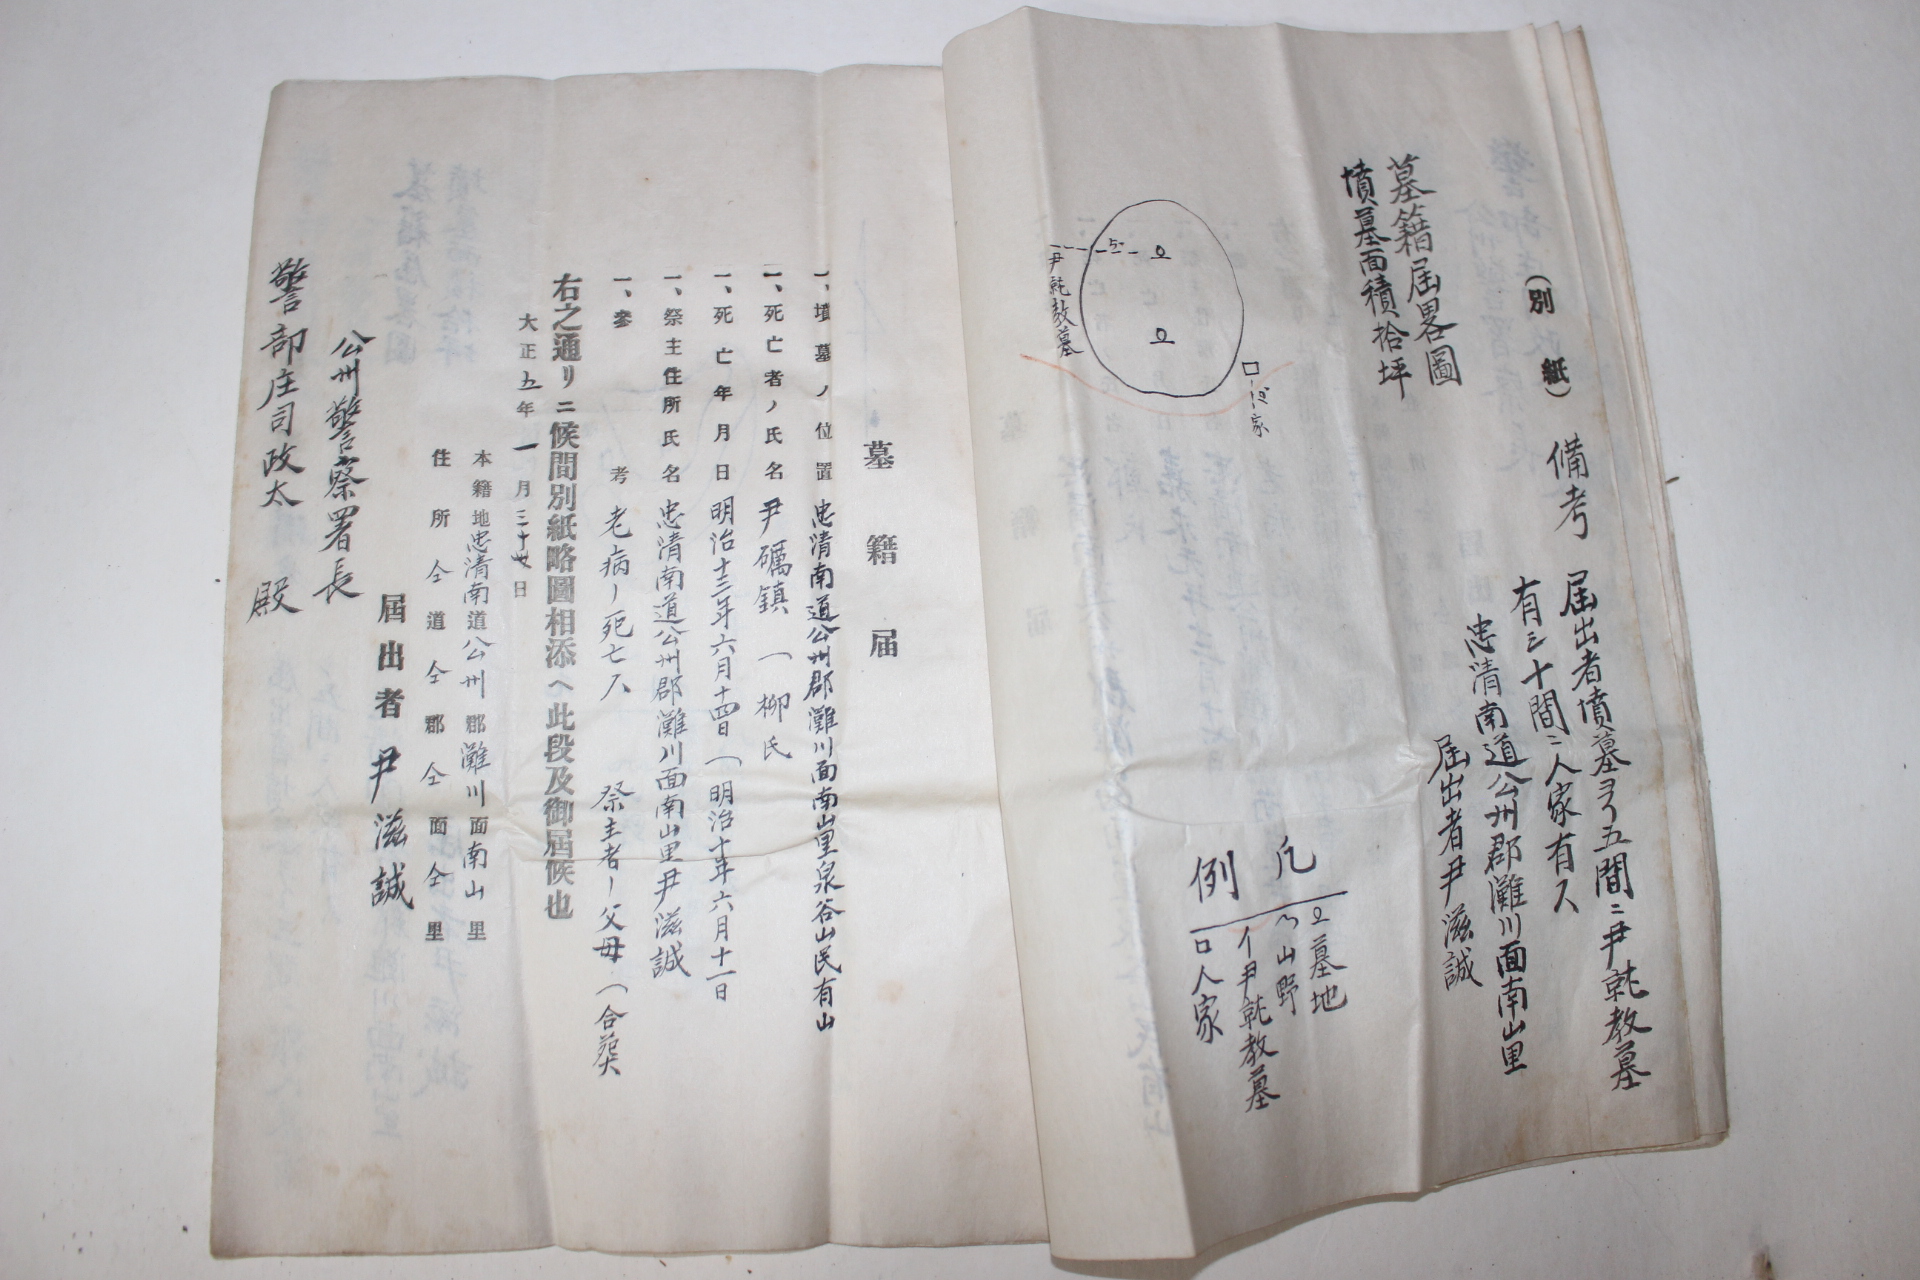 (別紙)
墓籍届畧圖
墳墓面積拾坪
備考
届出者墳墓ヨリ五間ニ尹乾教墓
有三十間ニ人家有ス
忠清南道公州郡灘川面南山里
届出者尹滋誠
人家
尹乾教墓
凡例
墓地
山野
イ尹乾教墓
口人家
墓籍届
一、墳墓ノ位置 忠清南道公州郡灘川面南山里泉谷山民有山
一、死亡者ノ氏名 尹礪鎮 (柳氏
一、死亡年月日 明治十三年六月十四日 (明治十年六月十一日
一、祭主住所氏名 忠清南道公州郡灘川面南山里尹滋誠
一、參考 老病ノ死亡ス 祭主者ノ父母 (合葬
右之通リニ候間別紙略圖相添ヘ此段及御届候也
大正五年一月三十日
本籍地忠清南道公州郡灘川面南山里
住所仝道仝郡仝面仝里
届出者 尹滋誠
公州警察署長
警部庄司政太 殿